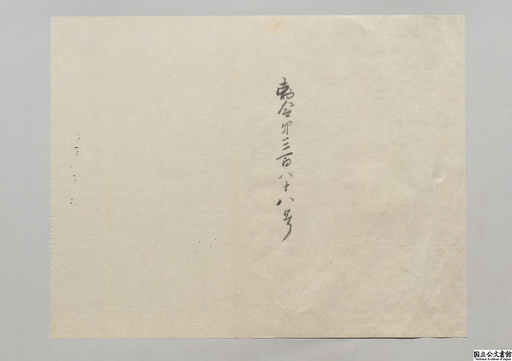 勅令第三百八十八号
国立公文書館
National Archives of Japan